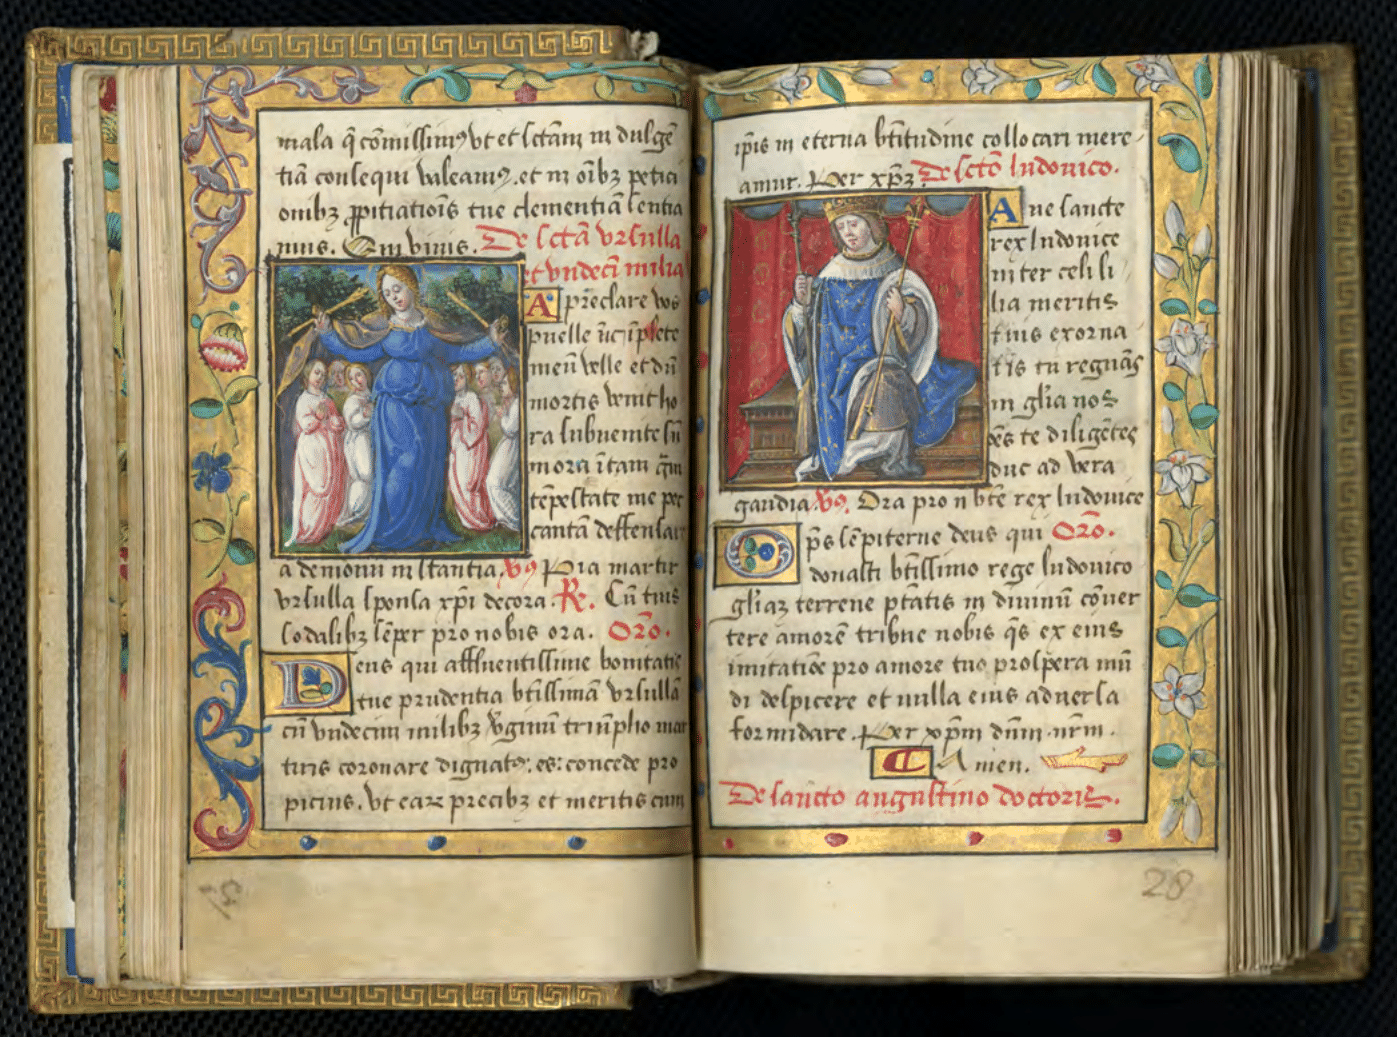 mala q̄ cōmissimꝰ vt et sctam in dulgē
tiā consequi valeamꝰ. et in oībꝫ petici
onibꝫ ꝓpitiatiois tue clementiā sentia
mus. Qui viuis. De sctā vrsulla
et vndeci milia
A preclare vos
puelle nūc īplete
meū velle et dū
mortis venit ho
ra subuenite sū
mora ītam
tēpestate me per
cantā deffensar
a demonū instantia. vꝰ Pia martir
vrsulla sponsa xp̄i decora. R. Cū tuis
sodalibꝫ sēper pro nobis ora. Oꝛō.
Deus qui affluentissime bonitatis
tue prudentia btissimā vrsullā
cū vndecim milibꝫ v̄ginū triūpho mar
tiris coronare dignatꝰ. es: concede pro
picius. vt eaꝝ precibꝫ et meritis cum
ip̄is in eterna btitudine collocari mere
amur. Per xp̄ꝫ. De sctō ludouico.
Aue sancte
rex ludouice
inter celi li
lia meritis
tuis exorna
tis tu regnās
in glīa nos
oēs te diligētes
duc ad vera
gaudia. vꝰ. Ora pro n btē rex ludouice
Op̄s sēpiterne deus qui Oꝛō.
donasti btissimo rege ludouico
glīaꝫ terrene ptātis in diuinū cōuer
tere amorē tribue nobis q̄s ex eius
imitatiōe pro amore tuo prospera mū
di despicere et nulla eius aduersa
formidare. Per xp̄m dn̄m nr̄m.
Amen.
De sancto augustino doctoris.
28